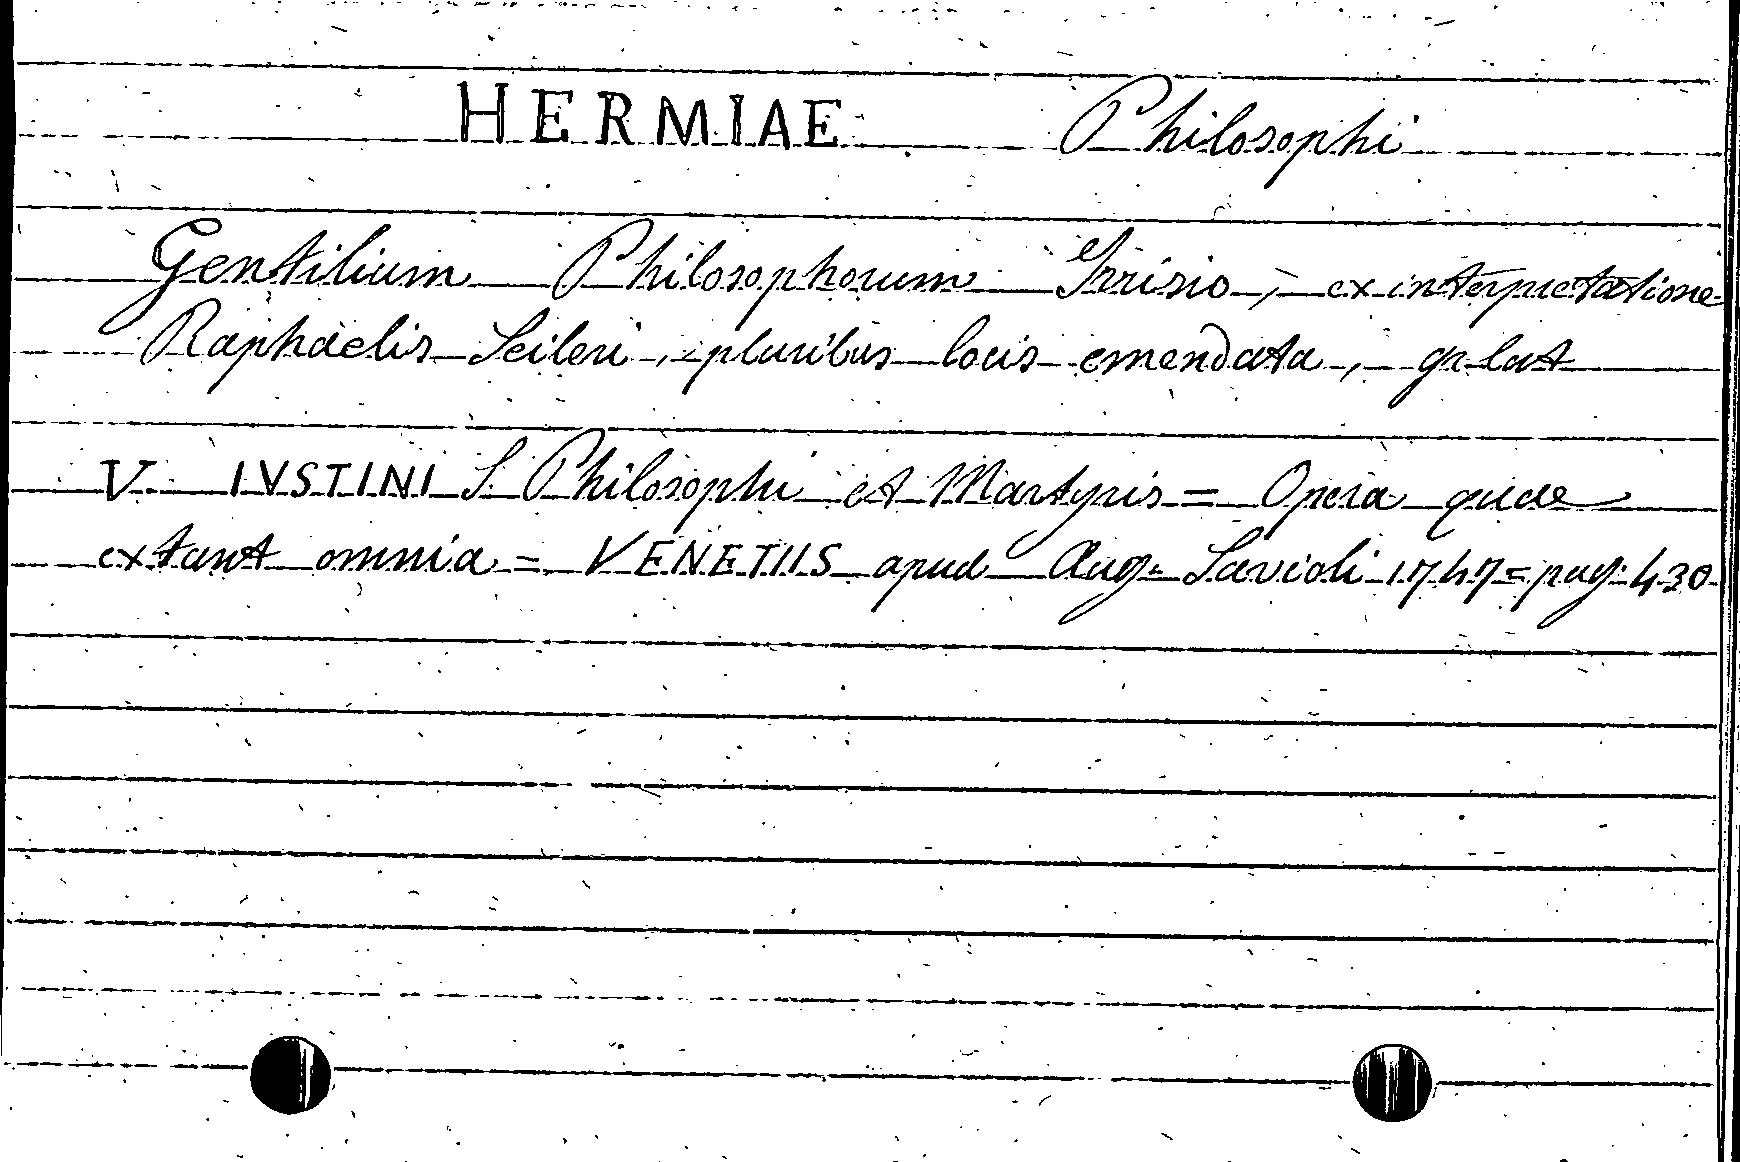 HERMIAE Philosophi
Gentilium Philosophorum Irrisio, ex interpretatione
Raphaelis Seileri, pluribus locis emendata, gr lat
V. IVSTINI S. Philosophi et Martyris = Opera quae
extant omnia = VENETIIS apud Aug. Savioli 1747 = pag. 430